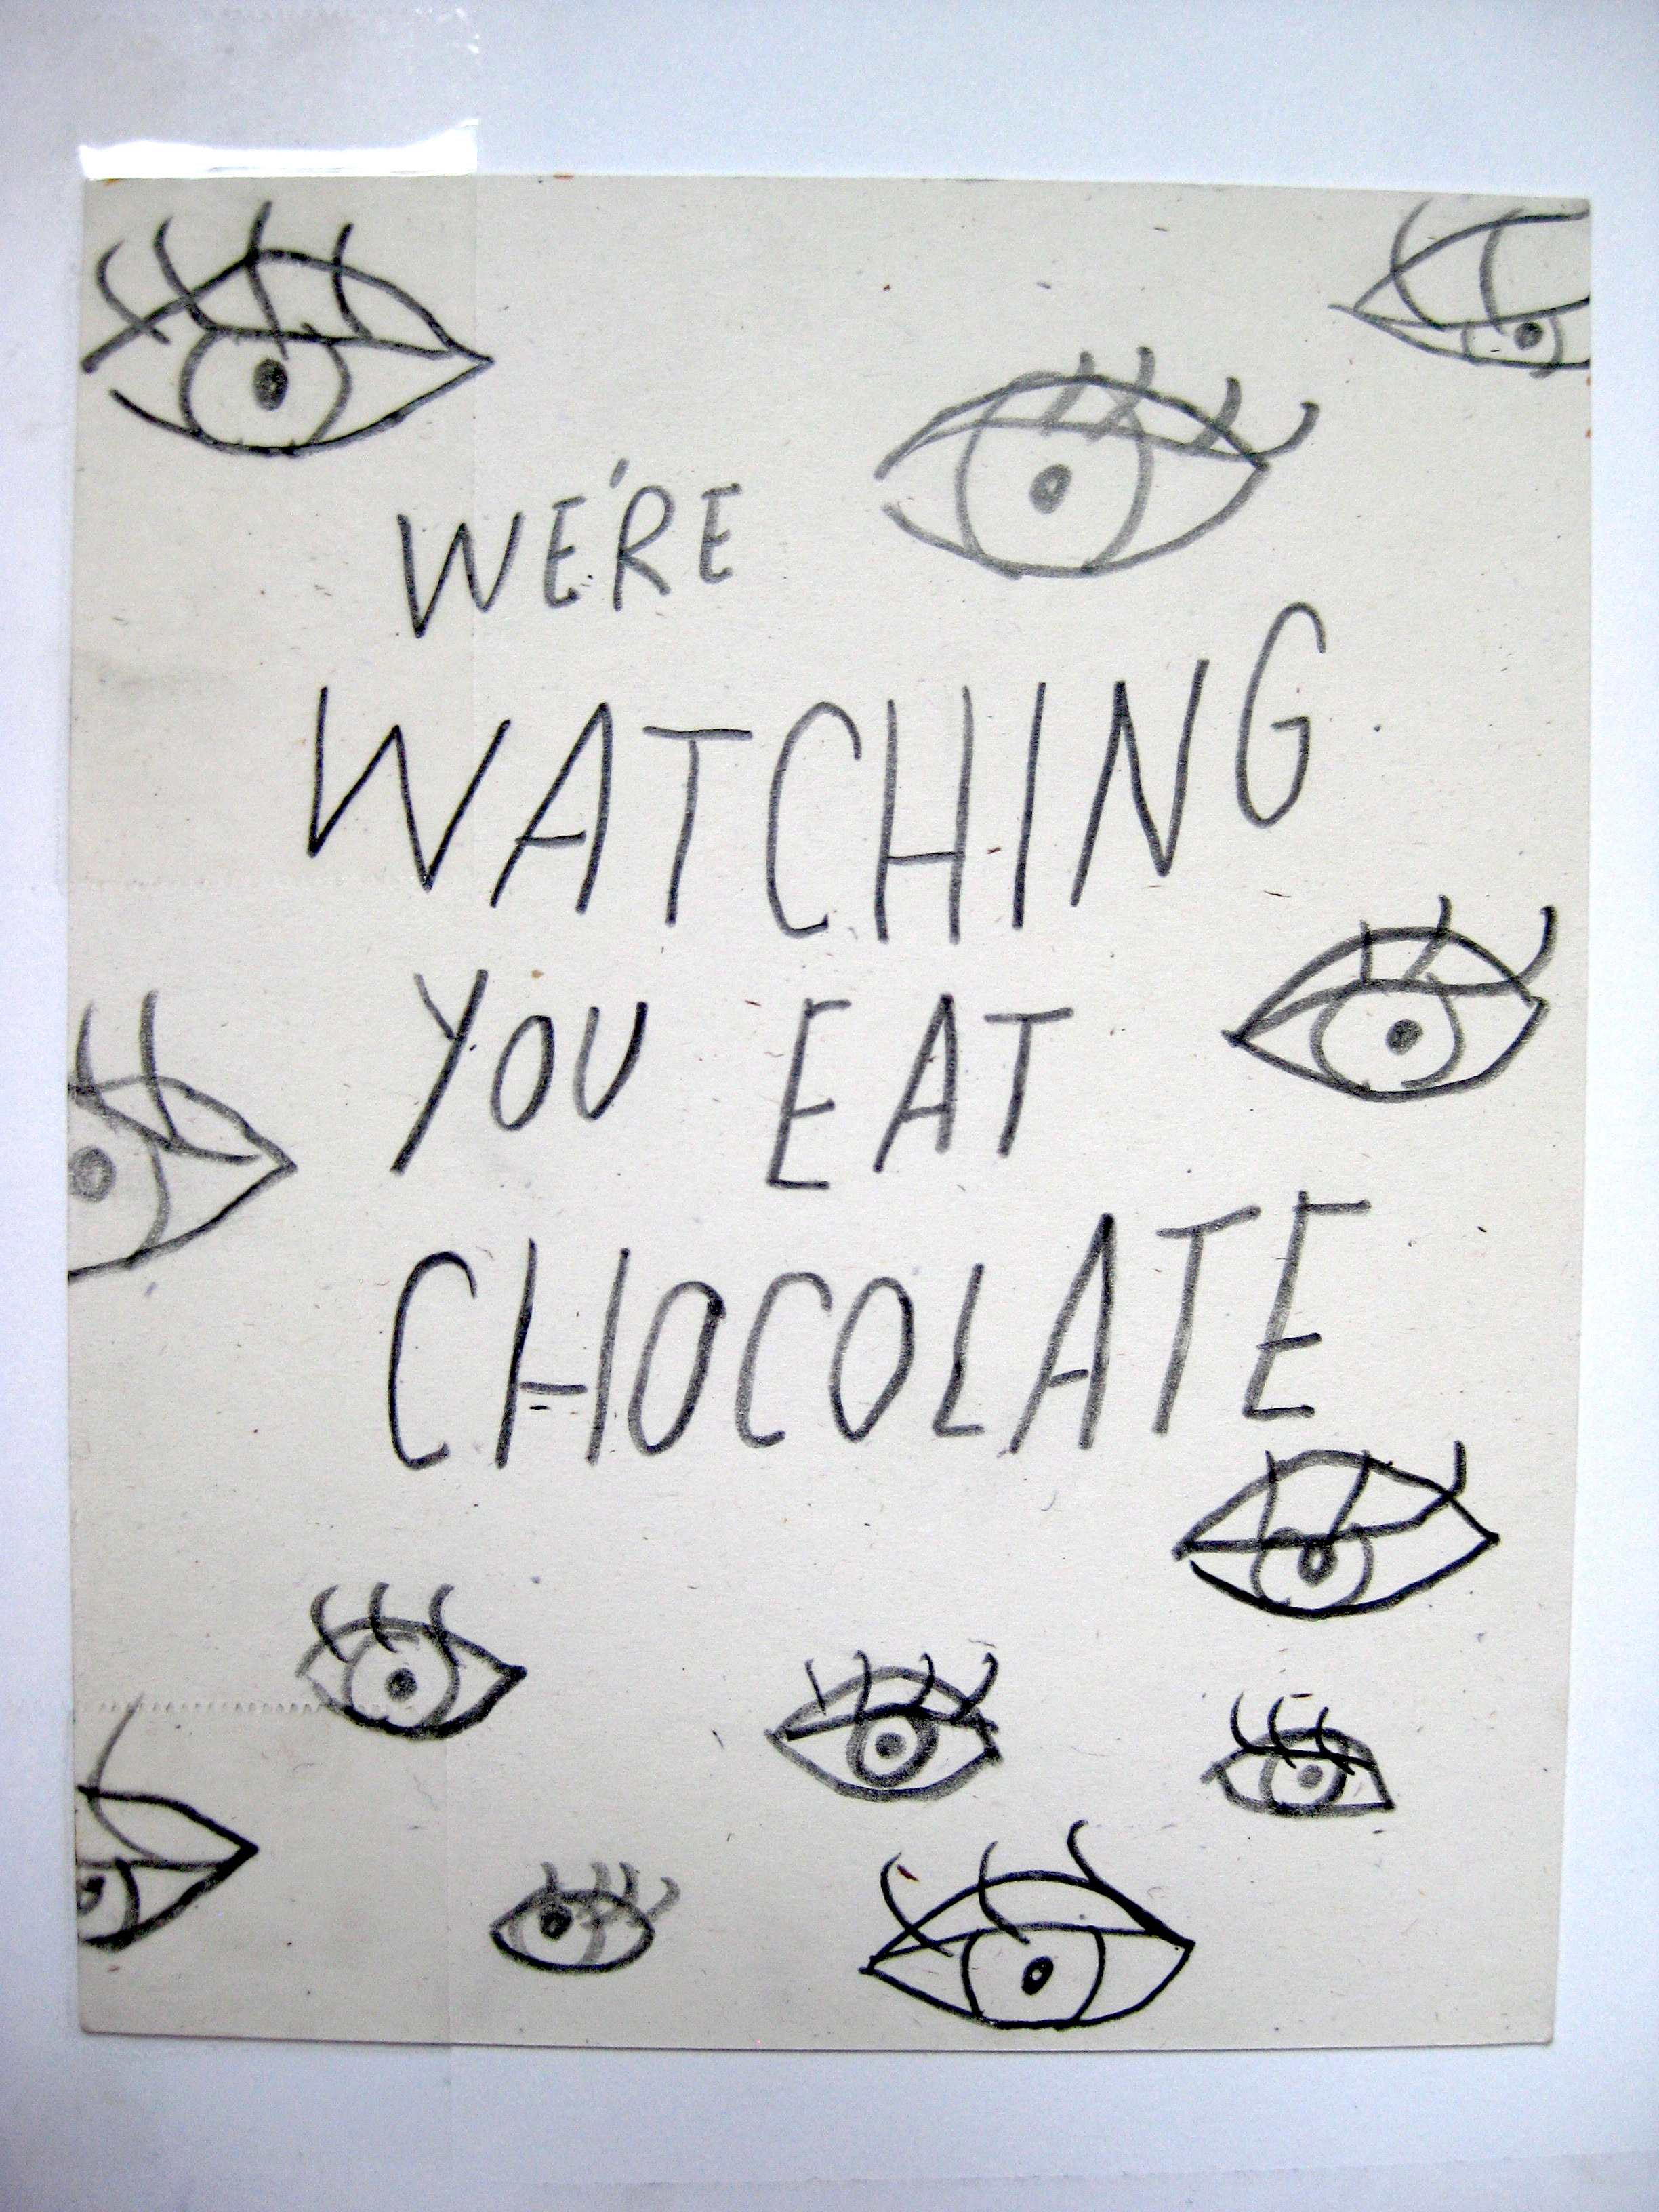 WE'RE
WATCHING
YOU EAT
CHOCOLATE